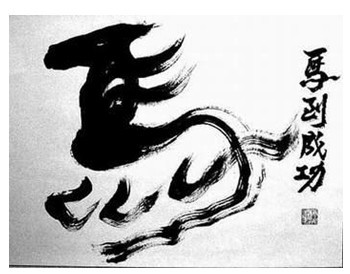 馬
馬到成功